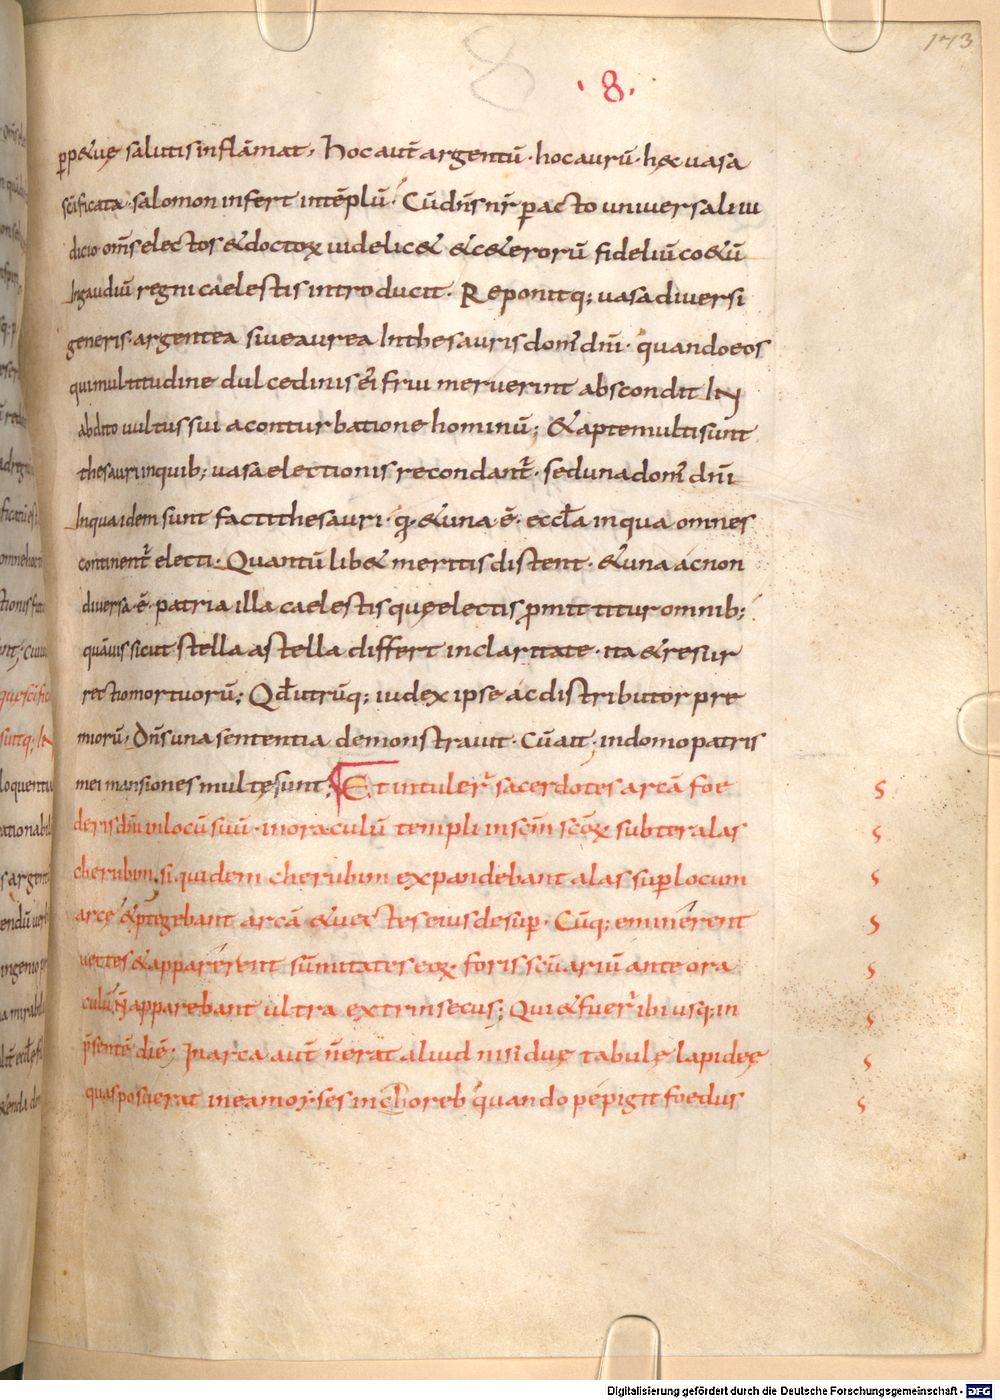 173
8
· 8 ·
ꝑp&uę salutis inflāmat, hoc aut̄ argentū · hoc aurū · hęc uasa
sc̄ificata · salomon infert intēplū · Cū dn̄s nr̄ ꝑacto uniuersali iu
dicio · om̄s electos & doctoꝝ uidelic& & c&erorū fideliū co&ū
In gaudiū regni caelestis introducit · Reponitq; uasa diuersi
generis · argentea siue aurea In thesauris dom̄ dn̄i · quando eos
qui multitudine dulcedinis ei frui meruerint abscondit IN
abdito uultus sui a conturbatione hominū; & apte multi sunt
thesauri in quib; uasa electionis recondant̄ · sed una dom̄ dn̄i
In qua idem sunt facti thesauri · q̄ · & una ē · eccl̄a in qua omnes
continent̄ electi · Quantū lib& meritis distent · & una ac non
diuersa · ē · patria illa caelestis quę electis ꝓmittitur omnib;
quāuis sicut stella a stella differt in claritate · ita & resur
rectio mortuorū; Qd̄ utrūq; iudex ipse ac distributor pre
miorū, dn̄s una sententia demonstrauit · Cū ait, in domo patris
mei mansiones multę sunt; Et intuler̄ sacerdotes arcā foe
deris dn̄i in locū suū · in oraculū templi in sc̄m sc̄oꝝ subter alas
cherubim. siquidem cherubim expandebant alas suꝑ locum
arcę & ꝓtegebant arcā & uectes eius desuꝑ · Cūq; eminerent
uectes & apparerent sūmitates eoꝝ foris sc̄uariū ante ora
culū, n̄ apparebant ultra extrinsecus; Qui & fuer̄ ibi usq; in
p̄sentē diē; In arca aut̄ n̄ erat aliud nisi duę tabulę lapideę
quas posuerat in ea moyses in choreb quando pepigit foedus
Digitalisierung gefördert durch die Deutsche Forschungsgemeinschaft - DFG